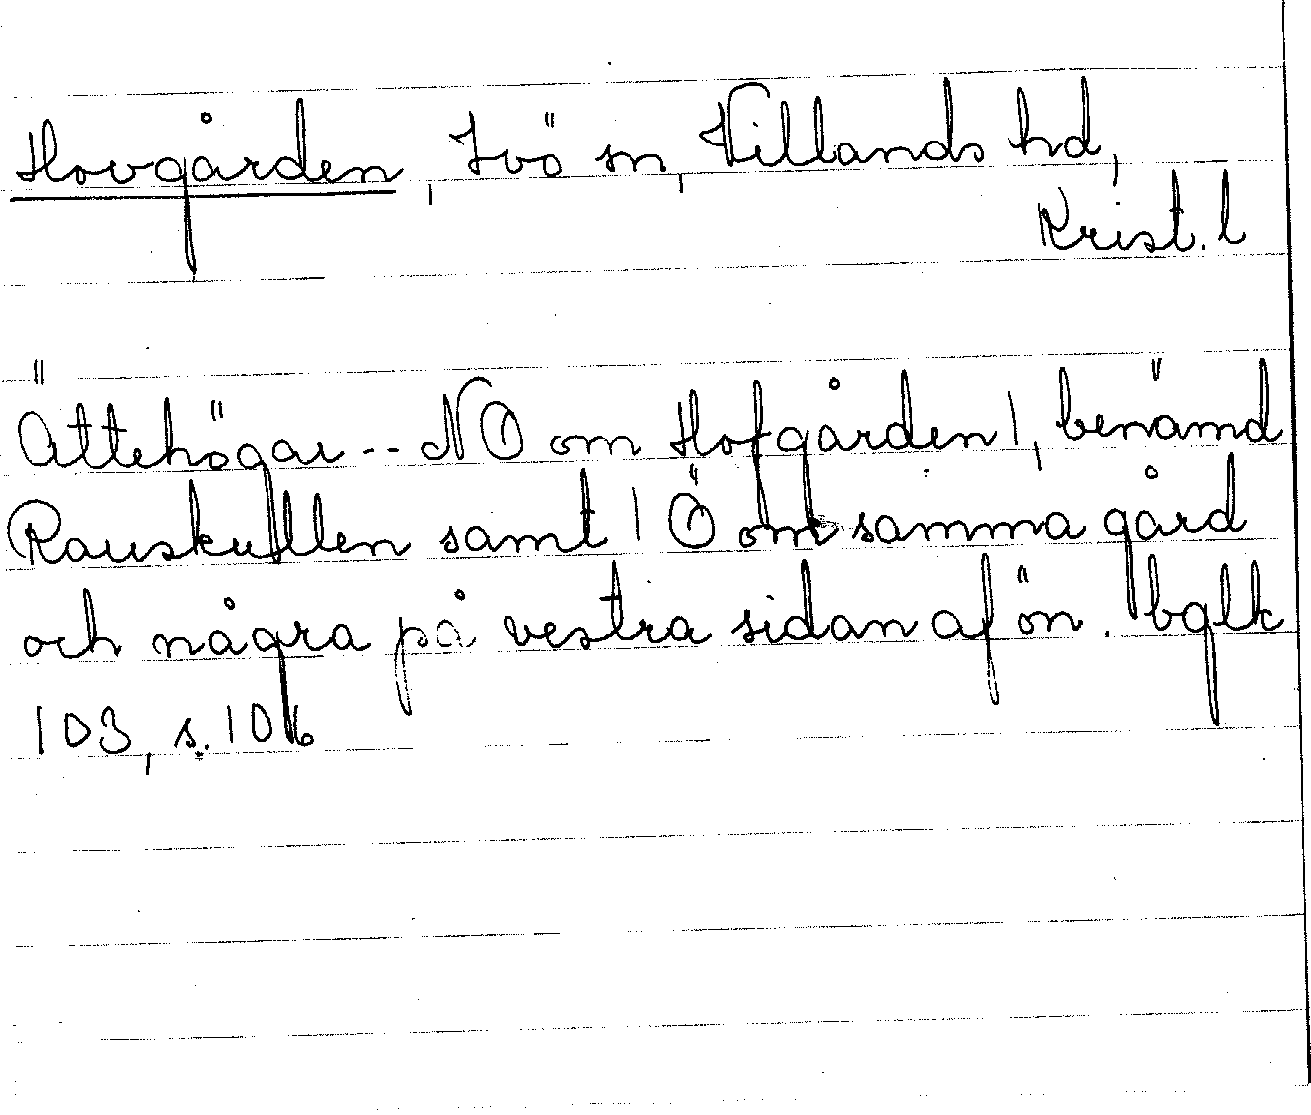 Hovgården, Ivö sn, Villands hd,
Krist. l
Ättehögar -- NO om Hofgården 1, benämd
Rauskullen samt 1 Ö om samma gård
och några på vestra sidan af ön. bglk
103, s. 106